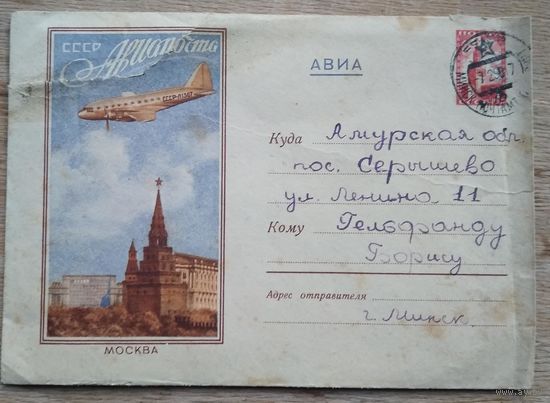 СССР Авиапочта
СССР-Л1387
МОСКВА
АВИА
Куда Амурская обл.
пос. Серышево
ул. Ленина 11
Кому Гельфанду
Борису
Адрес отправителя
г. Минск